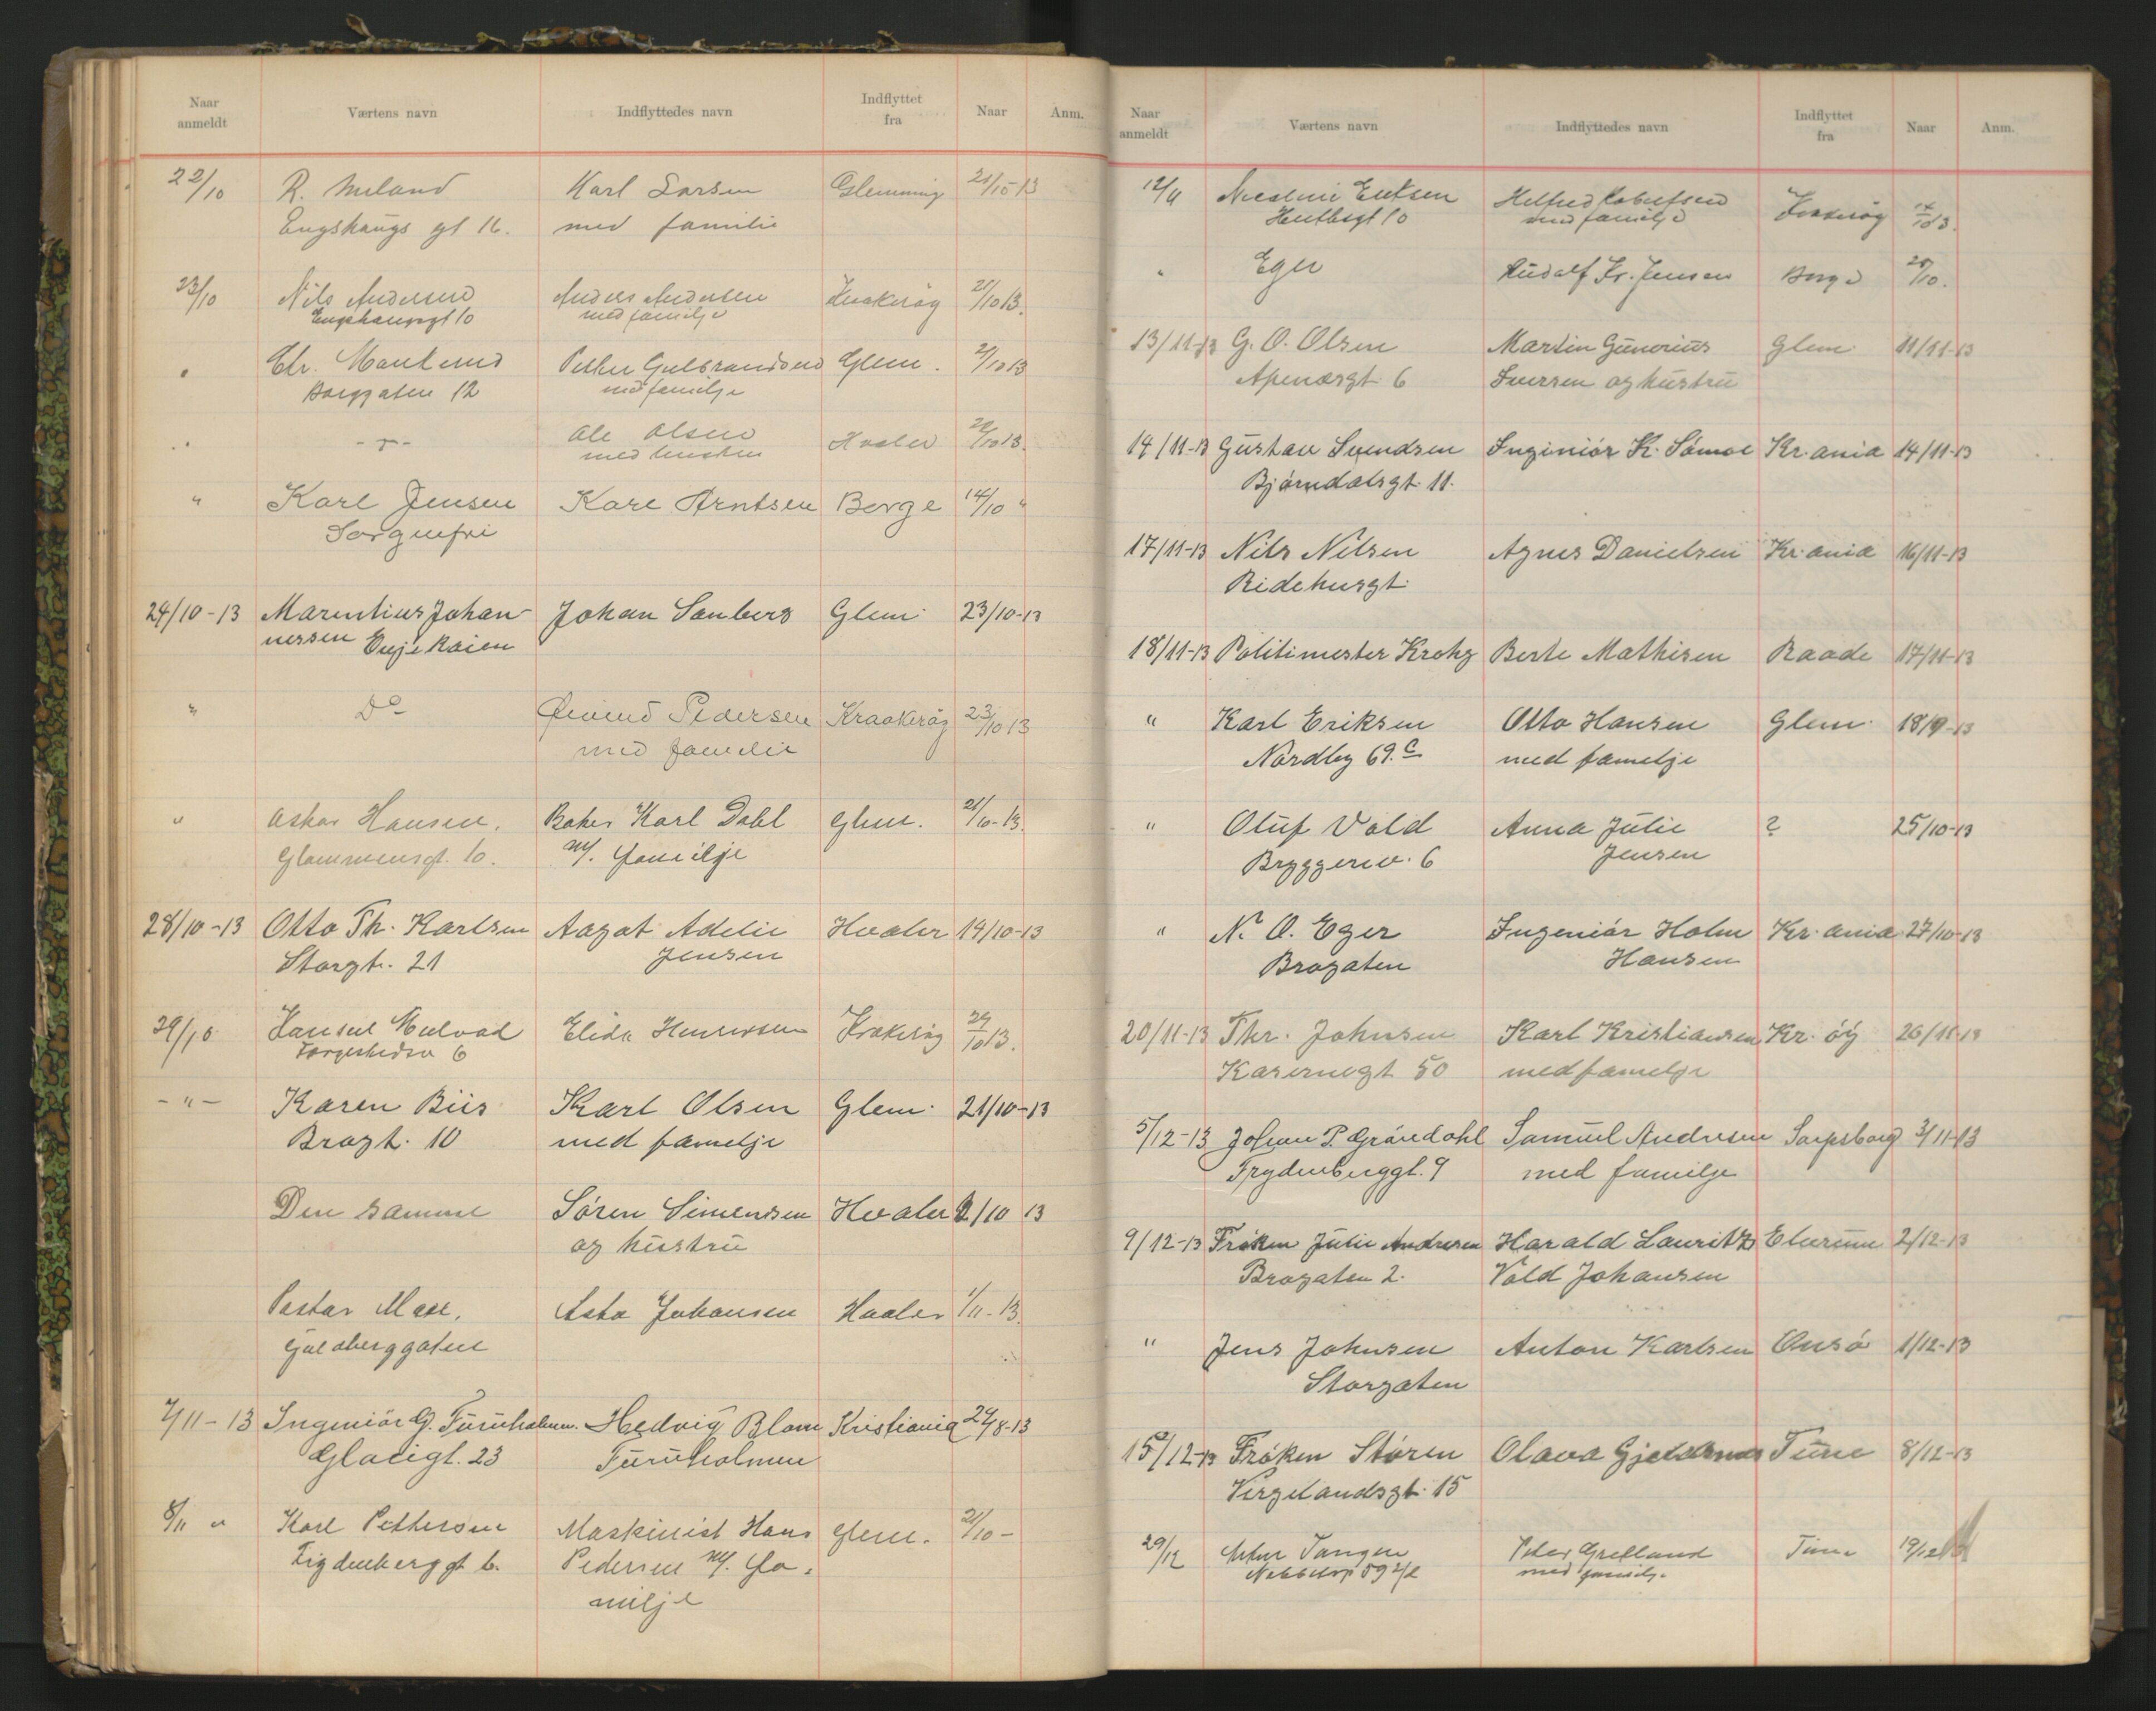 Naar anmeldt Værtens navn Indflyttedes navn Indflyttet fra Naar Anm.
22/10 R. Meland Karl Larsen Glemming 21/10-13
Engshaugs gt 16. med familie
23/10 Nils Andersen Anders Andersen Kraakerøy 21/10 13.
Engshaugsgt 10 med familje
" Chr. Petter Gulbrandsen Glem. 2/10 13
Borggaten 12 med familje
" -"- Ole Olsen Hvaler 13.
med
" Karl Jensen Kare Arntsen Borge 14/10 "
Sorgenfri
24/10-13 Marentius Johan- Johan Sanberg Glem. 23/10-13
nessen
" Do Øivind Pedersen Kraakerøy 23/10 13
med familie
" Oskar Hansen. Baker Karl Dahl Glem. 21/10-13.
Glommensgt. 10. m/ familje
28/10-13 Otto Th. Karlsen Aagot Adelie Hvaler 14/10-13
Storgt. 21 Jensen
29/10 Elida Henriksen Krakerøy 24/10 13.
6
-"- Karen Biis Karl Olsen Glem. 21/10-13
Brogt. 10 med familje
Den samme Søren Simensen Hvaler 2/10 13
og hustru
Pastor Asta Johansen Hvaler 1/11-13.
Guldberggaten
7/11-13 Ingeniør G. Furuholmen. Hedvig Blom Kristiania 24/8-13
Glacigt. 23 Furuholmen
8/11 " Karl Pettersen Maskinist Hans Glem. 21/10-
Trydenberggt 6. Pedersen m/ fa-
milje
Naar anmeldt Værtens navn Indflyttedes navn Indflyttet fra Naar Anm.
12/11 Kraakerøy
10 med familje
" Eger Rudolf Kr. Jensen Borge
13/11-13 G. O. Olsen Martin Gunerius Glem. 11/11-13
Apenæsgt 6 Iversen og hustru
14/11-13 Gustav Svendsen Inginiør K. Sømoe Kr.ania 14/11-13
Bjørndalsgt. 11.
17/11-13 Nils Nilsen Agnes Danielsen Kr.ania 16/11-13
Ridehusgt.
18/11-13 Politimester Krohg Berte Mathisen Raade 17/11-13
" Karl Eriksen Otto Hansen Glem. 18/9-13
Nordby 69. c med familje
" Oluf Vold Anna Julie ? 25/10-13
Bryggeriv. 6 Jensen
" N. O. Eger Ingeniør Holm Kr.ania 27/10-13
Brogaten Hansen
20/11-13 Thr. Johnsen Karl Kristiansen Kr.øy 26/11-13
Kasernegt 50 med familje
5/12-13 Johan P. Grøndahl Samuel Andresen Sarpsborg 3/11-13
Trydenberggt. 9 med familje
9/12-13 Frøken Julie Andresen Harald Lauritz Elverum 2/12-13
Brogaten 2. Vold Johansen
" Jens Johnsen Anton Karlsen Onsø 1/12-13
Storgaten
15/12-13 Frøken Støren Olava Tune 8/12-13
Vergelandsgt. 15
29/12 Tangen Peter Grefland Tune
med familje